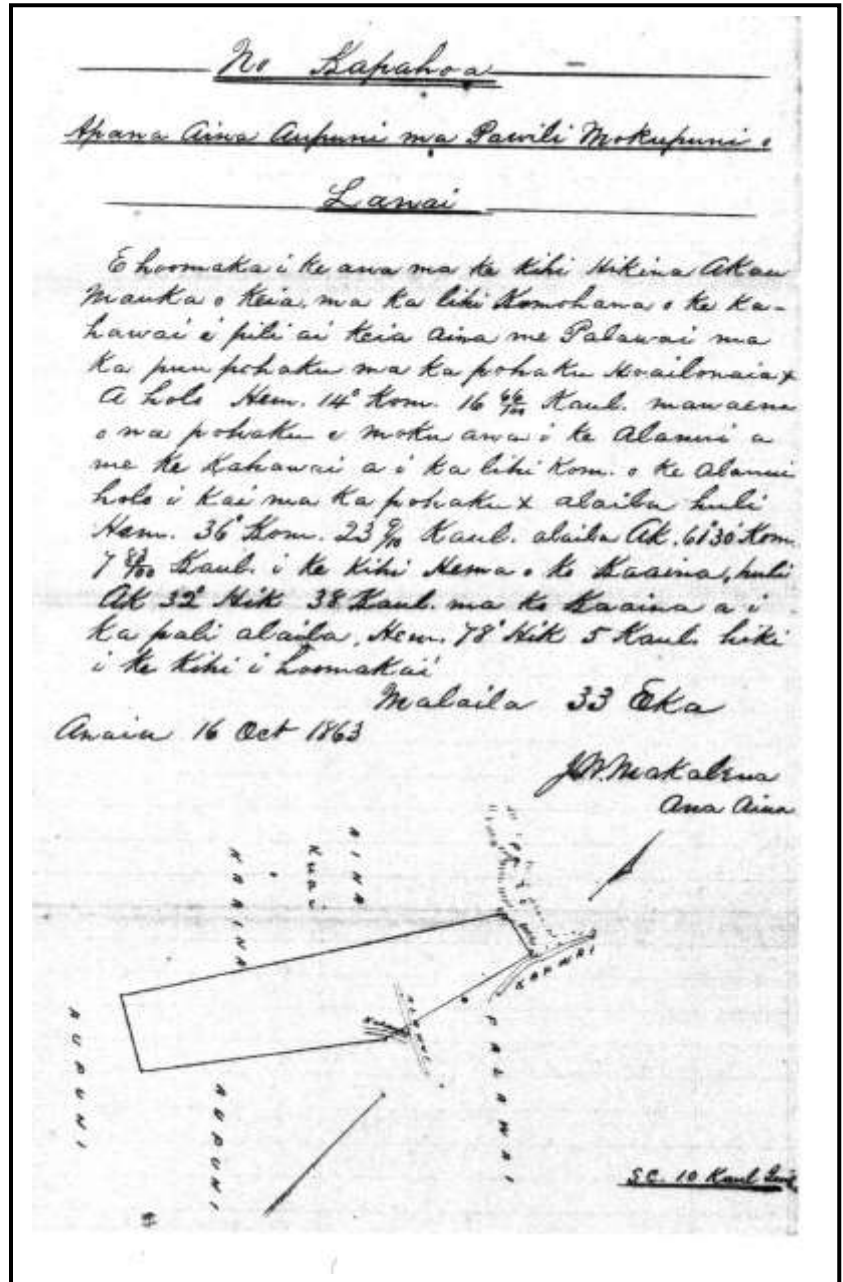 No Kapahoa
Apana Aina Aupuni ma Pawili Mokupuni o
Lanai
E hoomaka i ke ana ma ke kihi Hikina Akau
Mauka o keia, ma ka lihi Komohana o ke ka-
hawai e pili ai keia aina me Palawai ma
ka puu pohaku ma ka pohaku Hoailonaia x
A holo Hem. 14° Kom. 16 66/100 Kaul. mawaena
o na pohaku e moku ana i ke Alanui a
me ke Kahawai a i ka lihi Kom. o ke Alanui
holo i kai ma ka pohaku x alaila huli
Hem. 36° Kom. 23 9/10 Kaul. alaila Ak. 61°30' Kom.
7 83/100 Kaul. i ke kihi Hema o ko Kaaina, huli
Ak 32° Hik 38 Kaul. ma ko Kaaina a i
ka pali alaila, Hem. 78° Hik 5 Kaul. hiki
i ke Kihi i hoomakai
Malaila 33 Eka
Anaia 16 Oct 1863
J.W. Makalena
Ana Aina
AINA
KUAI
KAAINA
PALI
KAHAWAI
ALANUI
PALAWAI
AUPUNI
AUPUNI
SC. 10 Kaul